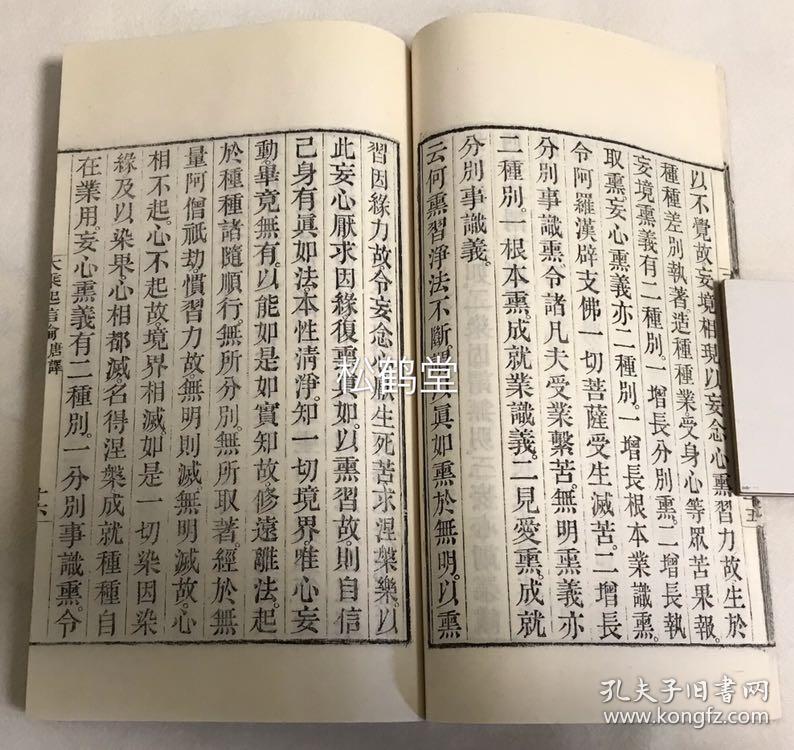 以不覺故妄境相現以妄念心熏習力故生於
種種差別執著造種種業受身心等眾苦果報。
妄境熏義有二種別。一增長分別熏。二增長執
取熏。妄心熏義亦二種別。一增長根本業識熏。
令阿羅漢辟支佛一切菩薩受生滅苦。二增長
分別事識熏。令諸凡夫受業繫苦。無明熏義亦
二種別。一根本熏。成就業識義。二見愛熏。成就
分別事識義。
云何熏習淨法不斷。以真如熏於無明。以熏
習因緣力故。令妄念心厭生死苦求涅槃樂。以
此妄心厭求因緣復熏真如。以熏習故。則自信
己身有真如法本性清淨。知一切境界唯心妄
動。畢竟無有。以能如是如實知故。修遠離法。起
於種種諸隨順行。無所分別。無所取著。經於無
量阿僧祇劫。慣習力故。無明則滅。無明滅故。心
相不起。心不起故。境界相滅。如是一切染因染
緣及以染果。心相都滅。名得涅槃。成就種種自
在業用。妄心熏義有二種別。一分別事識熏。令
大乘起信論唐譯
十六
五
松鹤堂
孔夫子旧书网
www.kongfz.com